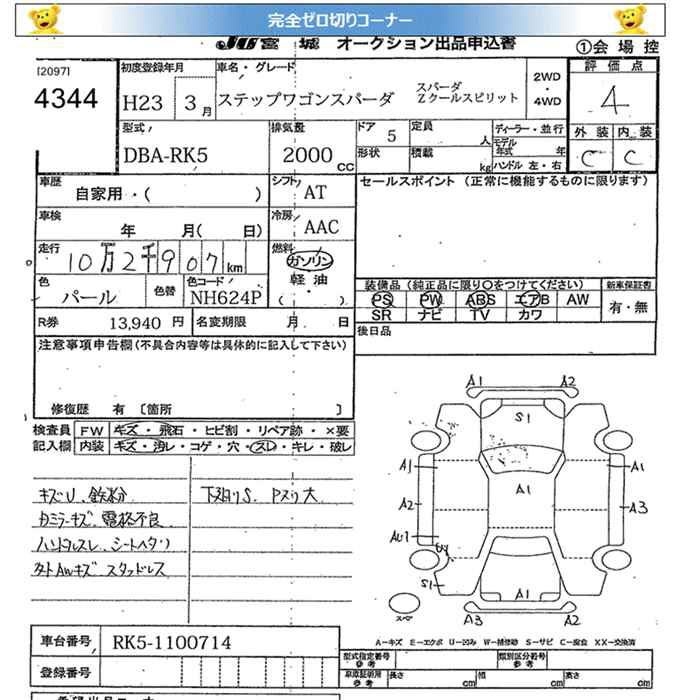 完全ゼロ切りコーナー
JU宮城 オークション出品申込書 ①会場控
[2097] 初度登録年月 車名・グレード 2WD ・ 4WD 評価点
4344 H23 3月 ステップワゴンスパーダ スパーダ Zクールスピリット 4
型式 排気量 ドア 5 定員 人 ディーラー・並行 外装 内装
DBA-RK5 2000 CC 形状 積載 kg モデル年式 年 ハンドル 左・右 C C
車歴 自家用・( ) シフト AT セールスポイント (正常に機能するものに限ります)
車検 年 月( 日) 冷房 AAC
走行 10万2千907km 燃料 ガソリン 軽油 ・( )
色 パール 色替 色コード NH624P
装備品 (純正品に限り○をつけてください) 新車保証書
PS PW ABS エアB AW 有・無
SR ナビ TV カワ
R券 13,940 円 名変期限 月 日 後日品
注意事項申告欄(不具合内容等は具体的に記入して下さい)
修復歴 有 〔箇所 〕
検査員 FW キズ・飛石・ヒビ割・リペア跡・×要
記入欄 内装 キズ・汚レ・コゲ・穴・スレ・キレ・破レ
キズU、鉄粉 下廻りS、Pスリ大
カミラーキズ、電格不良
ハンドルスレ、シートヘタリ
外AWキズ スタッドレス
A1 A2
S1
A1 A1 A1
A2 A3
AU1
UY
S1 A1
A3 A2
スペア
A－キズ E－エクボ U－凹み W－補修跡 S－サビ C－腐食 XX－交換済
車台番号 RK5-1100714
登録番号
型式指定番号 参考 類別区分番号 参考
車庫証明用 参考 長さ cm 幅 cm 高さ cm
希望出品コーナー